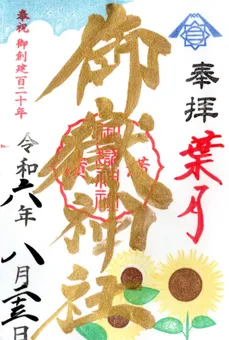 奉拝
葉月
御嶽神社
御嶽神社
奉祝 御創建百二十年
令和六年 八月二十三日